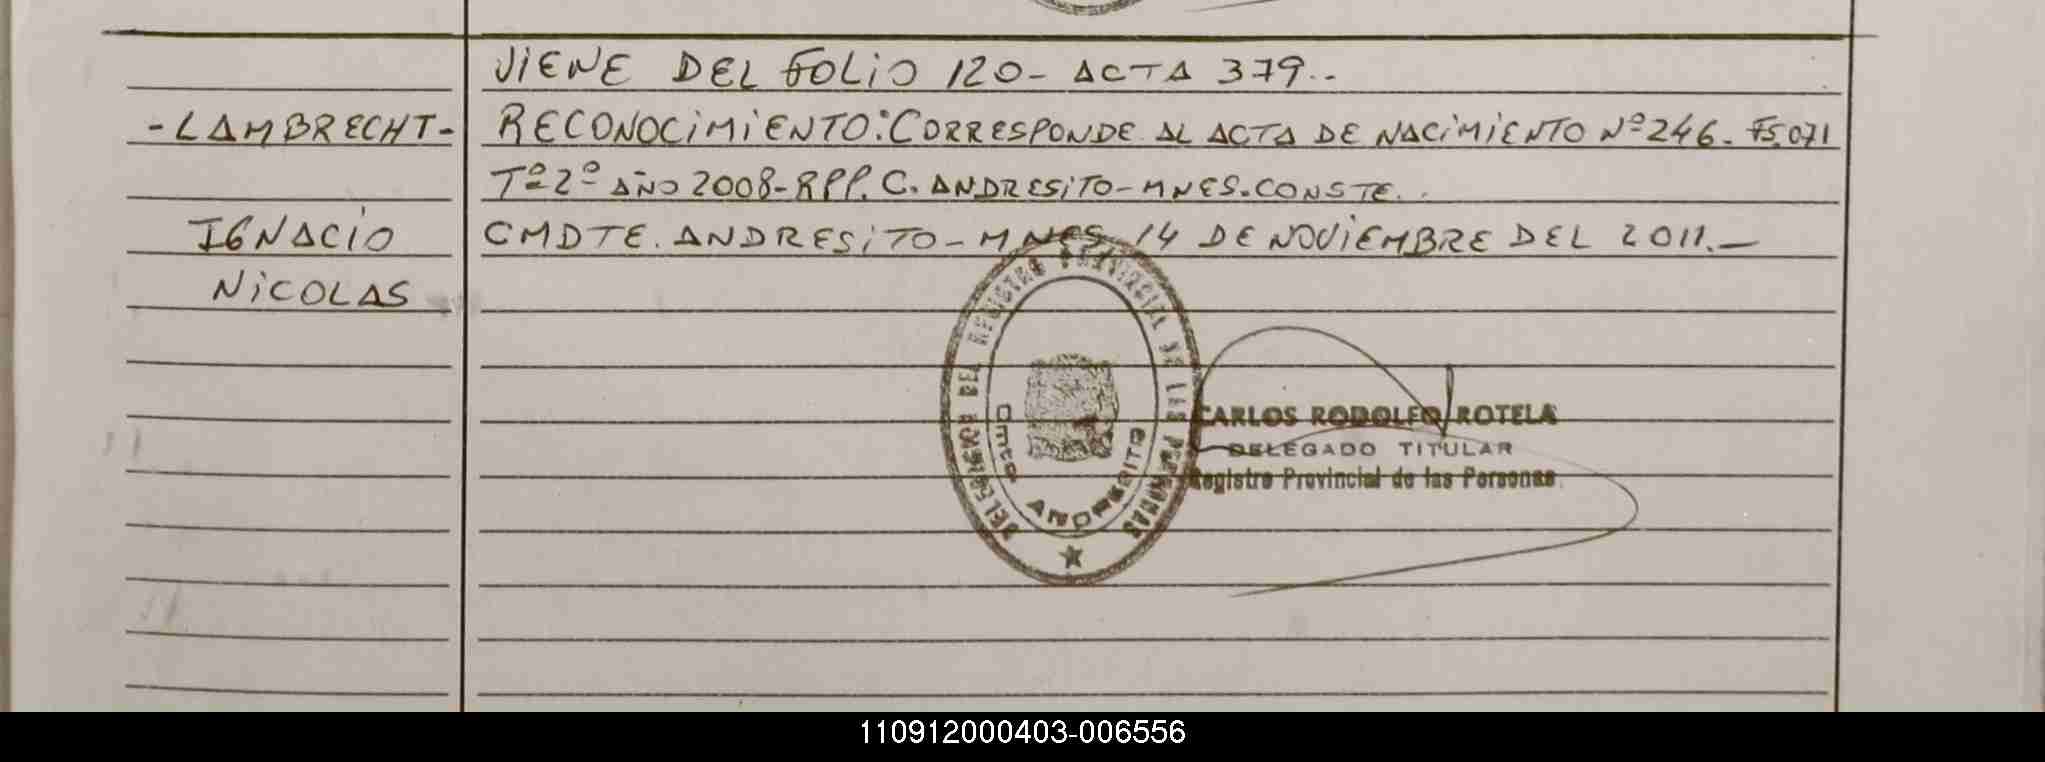 VIENE DEL FOLIO 120- ACTA 379..
-LAMBRECHT- RECONOCIMIENTO: CORRESPONDE AL ACTA DE NACIMIENTO Nº 246. Fs.071
Tº 2º AÑO 2008-RPP. C. ANDRESITO-MNES.CONSTE..
IGNACIO CMDTE. ANDRESITO-MNES 14 DE NOVIEMBRE DEL 2011.-
NICOLAS
DELEGACION DEL REGISTRO PROVINCIAL DE LAS PERSONAS
Cmte. ANDRESITO
CARLOS RODOLFO ROTELA
DELEGADO TITULAR
Registro Provincial de las Personas
110912000403-006556